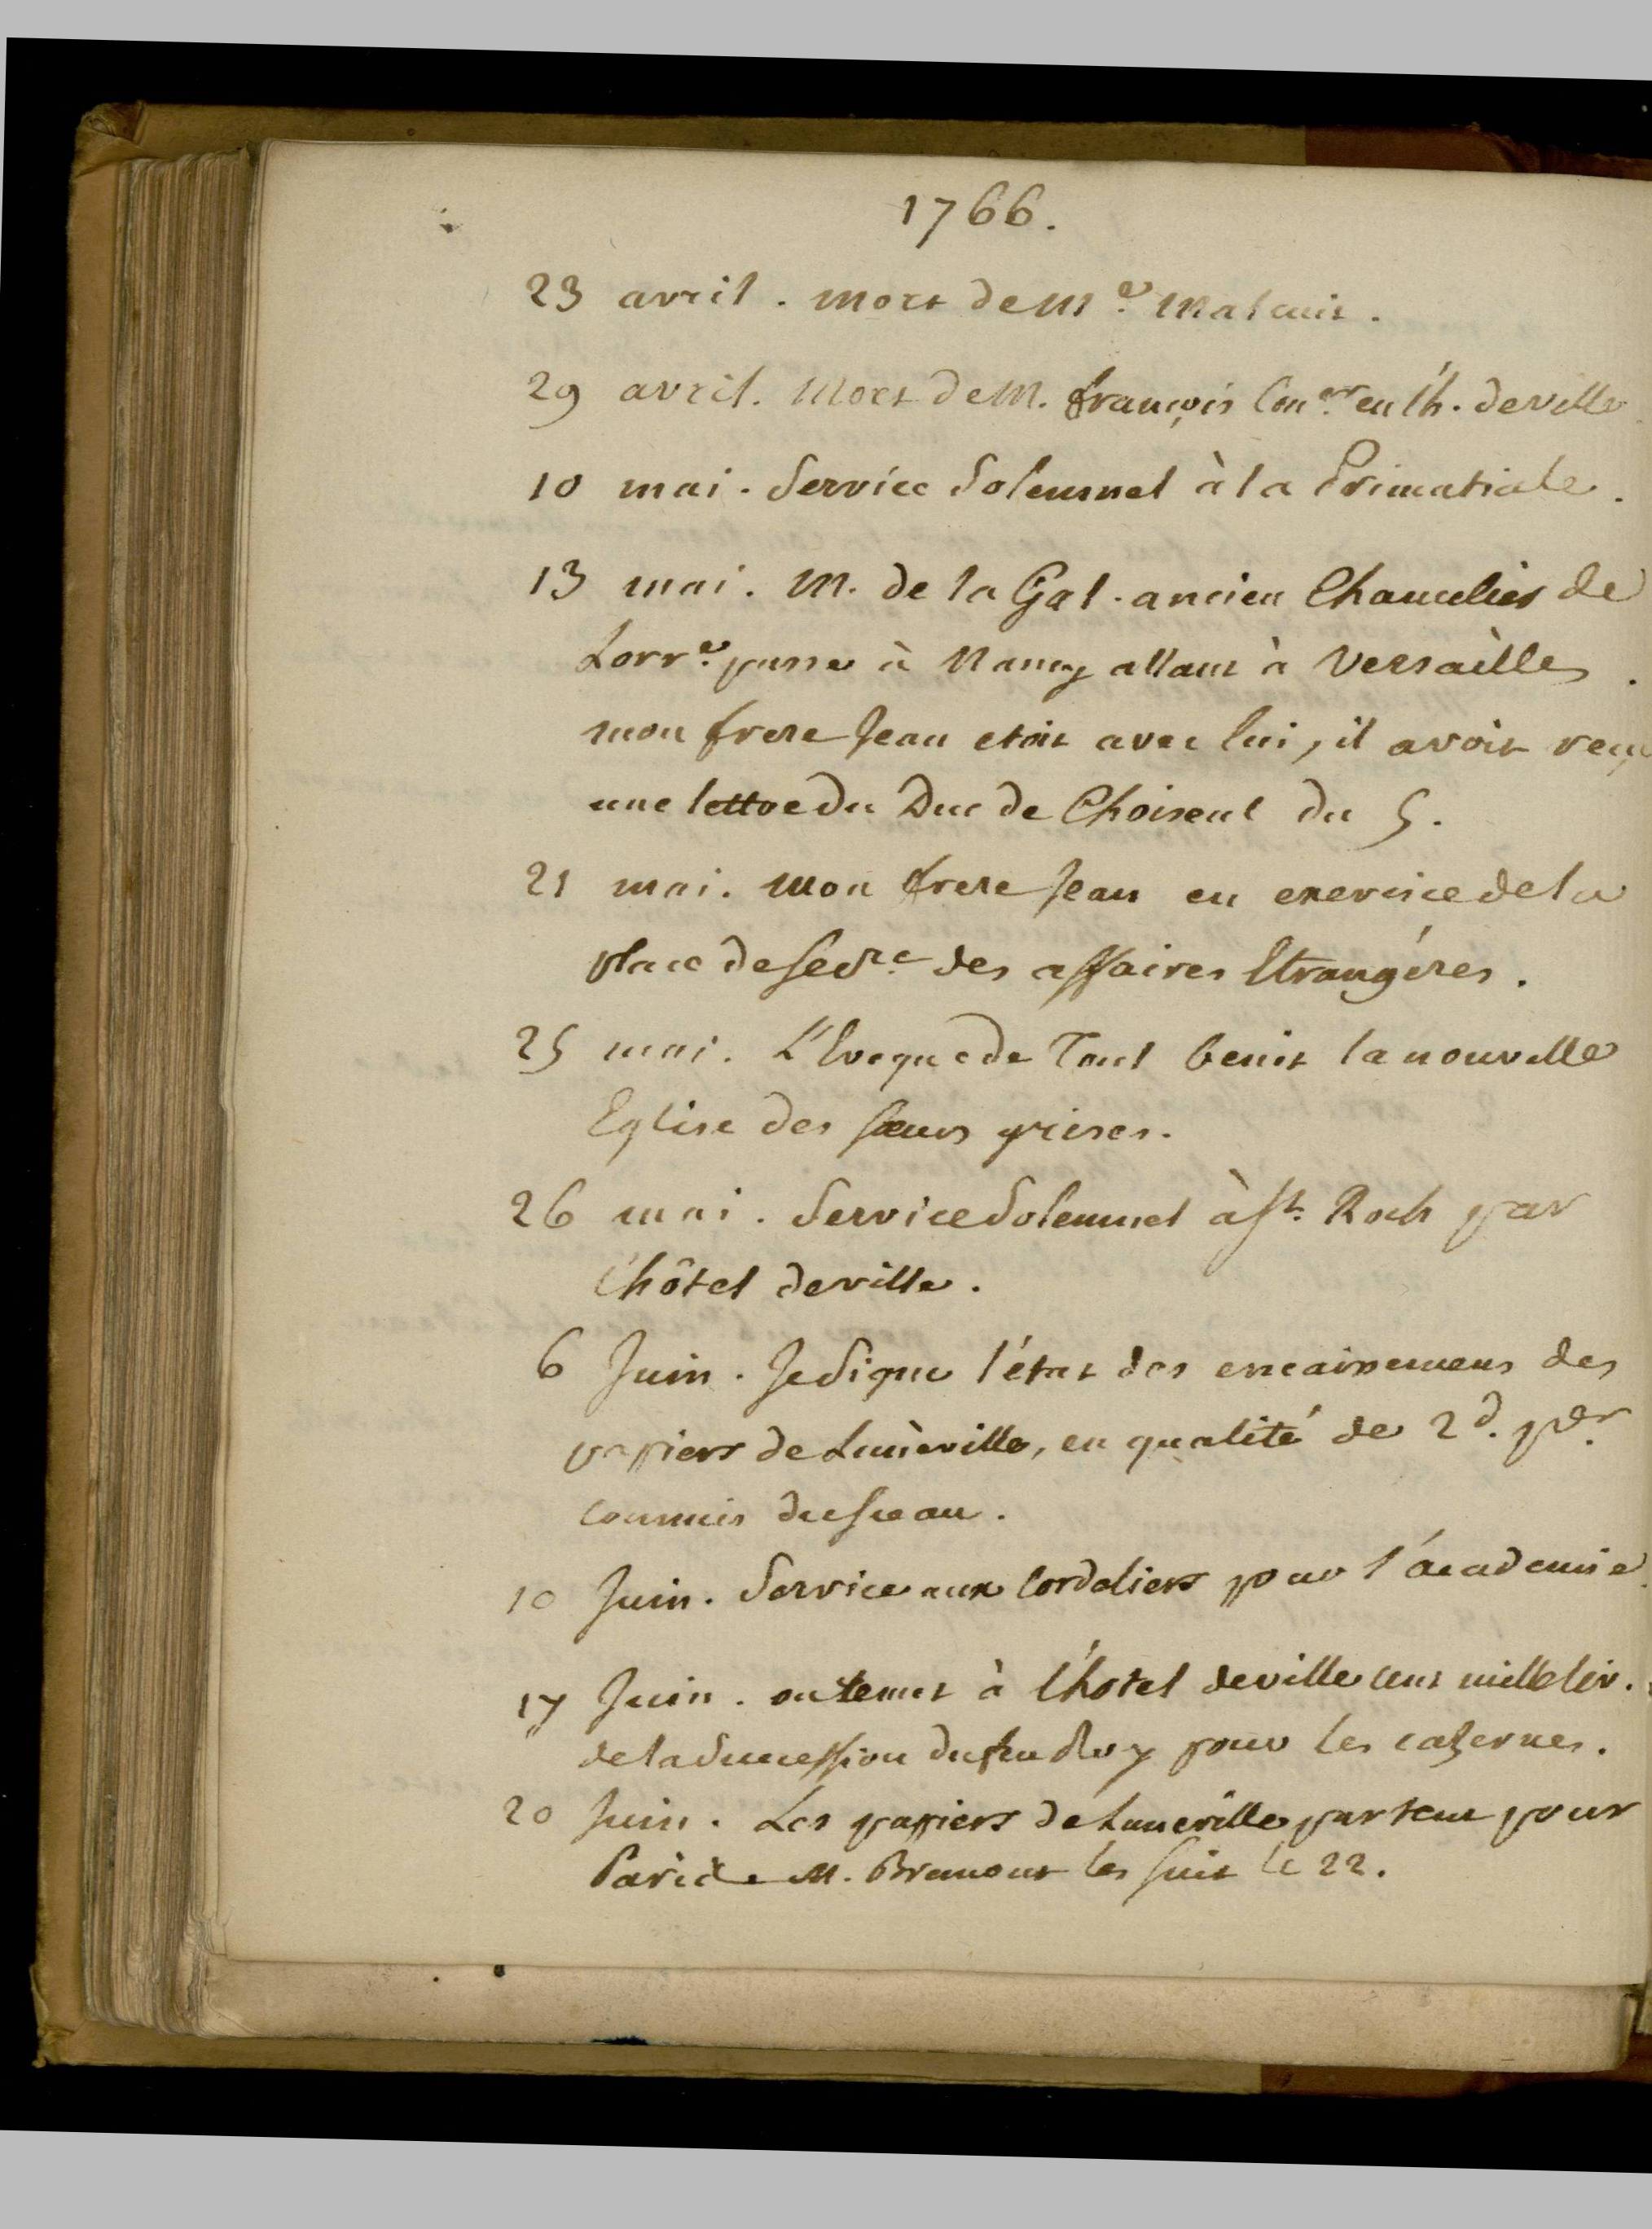 1766.
23 avril. mort de M.e Malcuit.
29 avril. Mort de M. françois Con.er en l'h. de ville
10 mai. Service Solemnel à la Primatiale.
13 mai. M. de la Gal. ancien Chancelier de
Lorr.e passe à Nancy allant à Versailles.
mon frere Jean etoit avec lui, il avoit reçu
une lettre du Duc de Choiseul du 5.
21 mai. Mon frere Jean en exercice de la
place de Secr.e des affaires Etrangéres.
25 mai. L'Eveque de Toul benit la nouvelle
Eglise des sœurs grises.
26 mai. Service Solemnel à St. Roch par
l'hôtel de ville.
6 Juin. Je Signe l'état des encaissemens des
papiers de Lunéville, en qualité de 2d. p.er
commis du sceau.
10 Juin. Service aux Cordeliers pour l'académie.
17 Juin. on remet à l'hotel de ville cent mille liv.
de la Succession du feu Roy pour les cazernes.
20 Juin. Les papiers de Luneville partent pour
Paris M. Bremont les suit le 22.